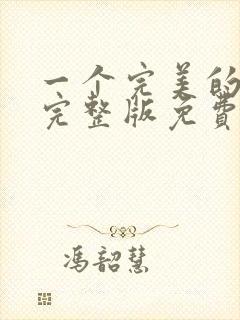 一个完美的
完整版免费
冯韶慧